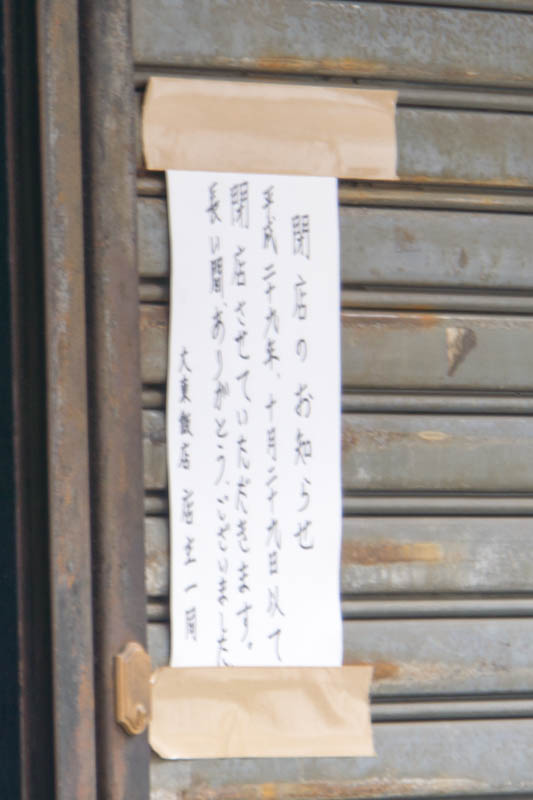 閉店のお知らせ
平成二十九年、十月二十九日以て
閉店させていただきます。
長い間、ありがとう、ございました
大東飯店 店主一同